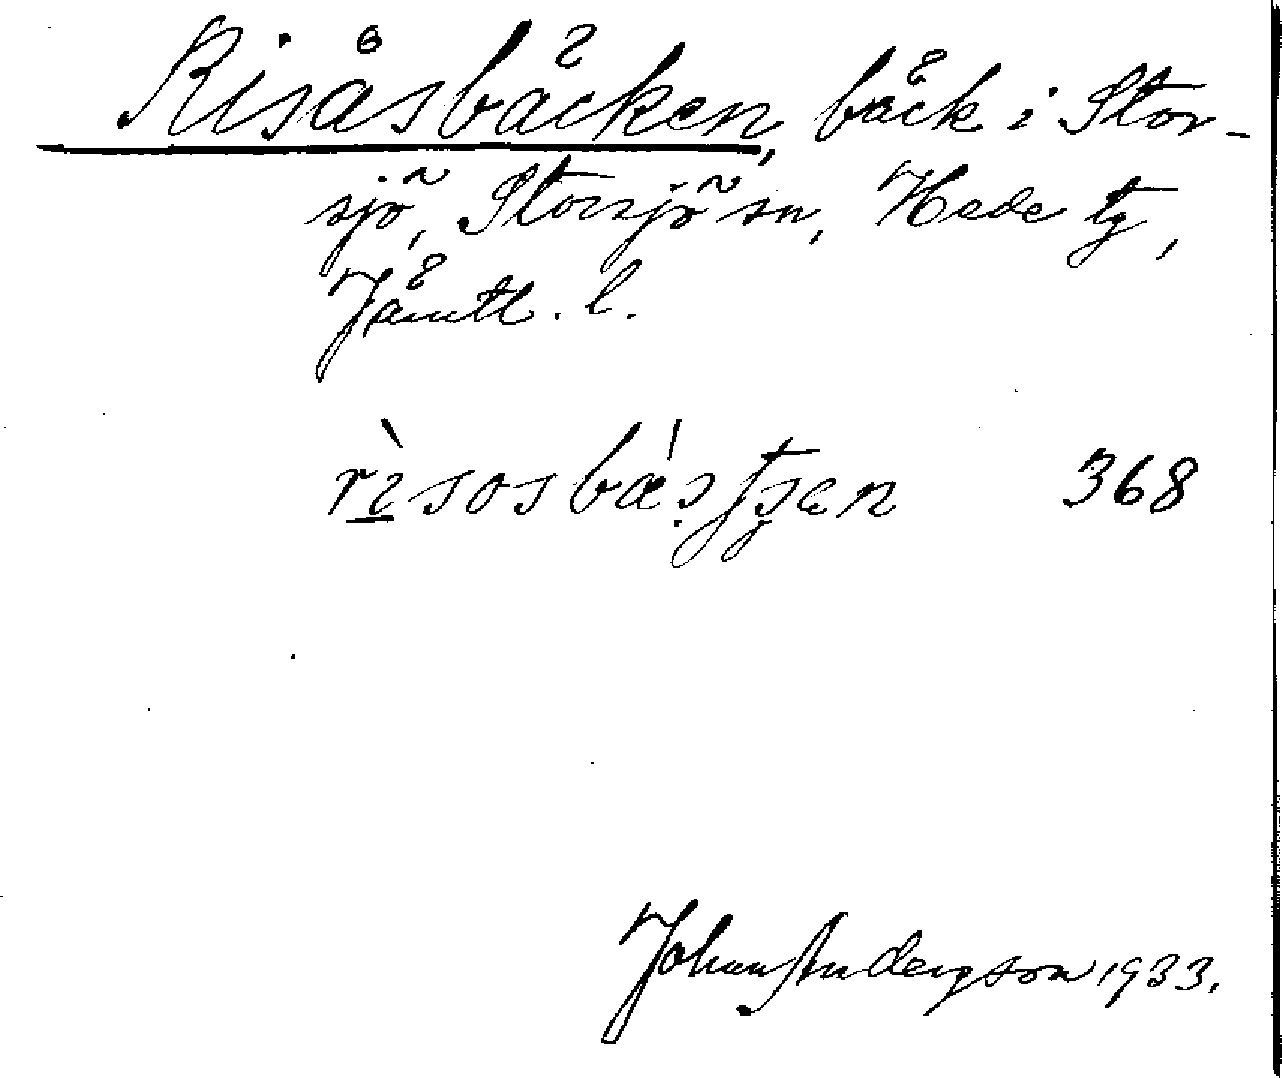 Risåsbäcken, bäck i Stor-
sjö, Storsjö sn, Hede tg,
Jämtl. l.
368
Johan Anderson 1933.